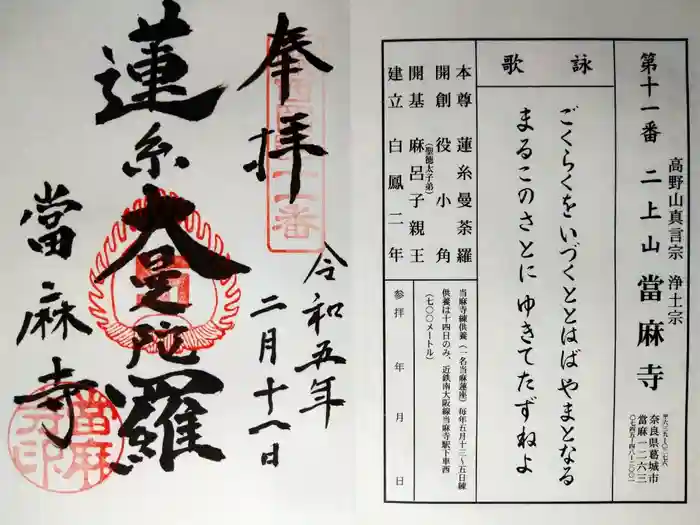 第十一番 二上山 當麻寺
高野山真言宗 浄土宗
奈良県葛城市
當麻一二六三
詠歌
ごくらくをいづくととはばやまとなる
まるこのさとに ゆきてたずねよ
本尊 蓮糸曼荼羅
開創 役小角
開基 麻呂子親王
(聖徳太子弟)
建立 白鳳二年
当麻寺練供養(一名当麻蓮座)毎年五月十三~五日練
供養は十四日のみ、近鉄南大阪線当麻寺駅下車西
(七〇〇メートル)
参拝 年 月 日
奉拝
令和五年
二月十八日
蓮糸大曼陀羅
當麻寺